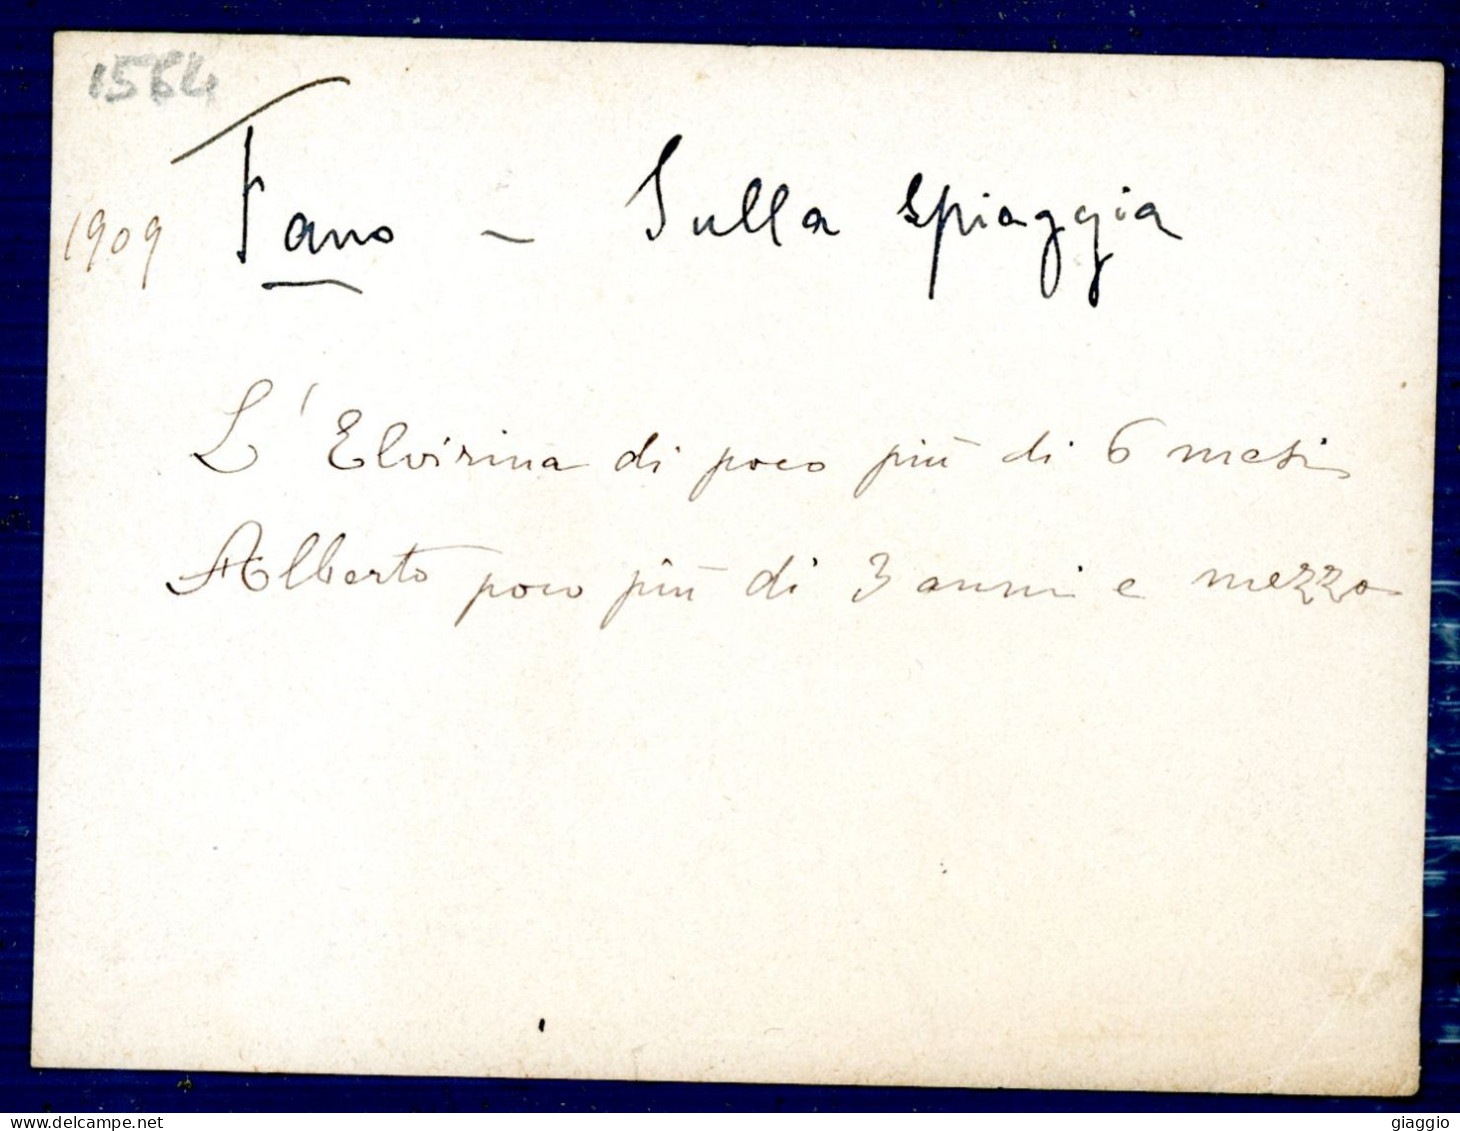 1564
1909 Fano - Sulla spiaggia
L'Elvirina di poco più di 6 mesi
Alberto poco più di 3 anni e mezzo
delcampe.net
giaggio